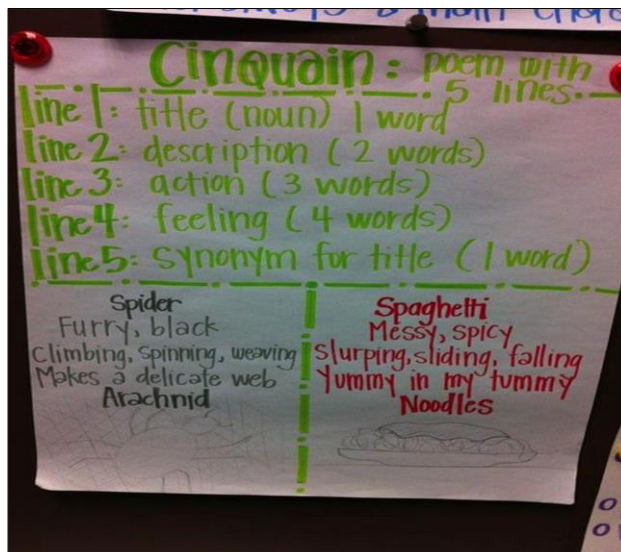 Cinquain: poem with
5 lines.
line 1: title (noun) 1 word
line 2: description (2 words)
line 3: action (3 words)
line 4: feeling (4 words)
line 5: synonym for title (1 word)
Spider
Furry, black
Climbing, spinning, weaving
Makes a delicate web
Arachnid
Spaghetti
Messy, spicy
Slurping, sliding, falling
Yummy in my tummy
Noodles